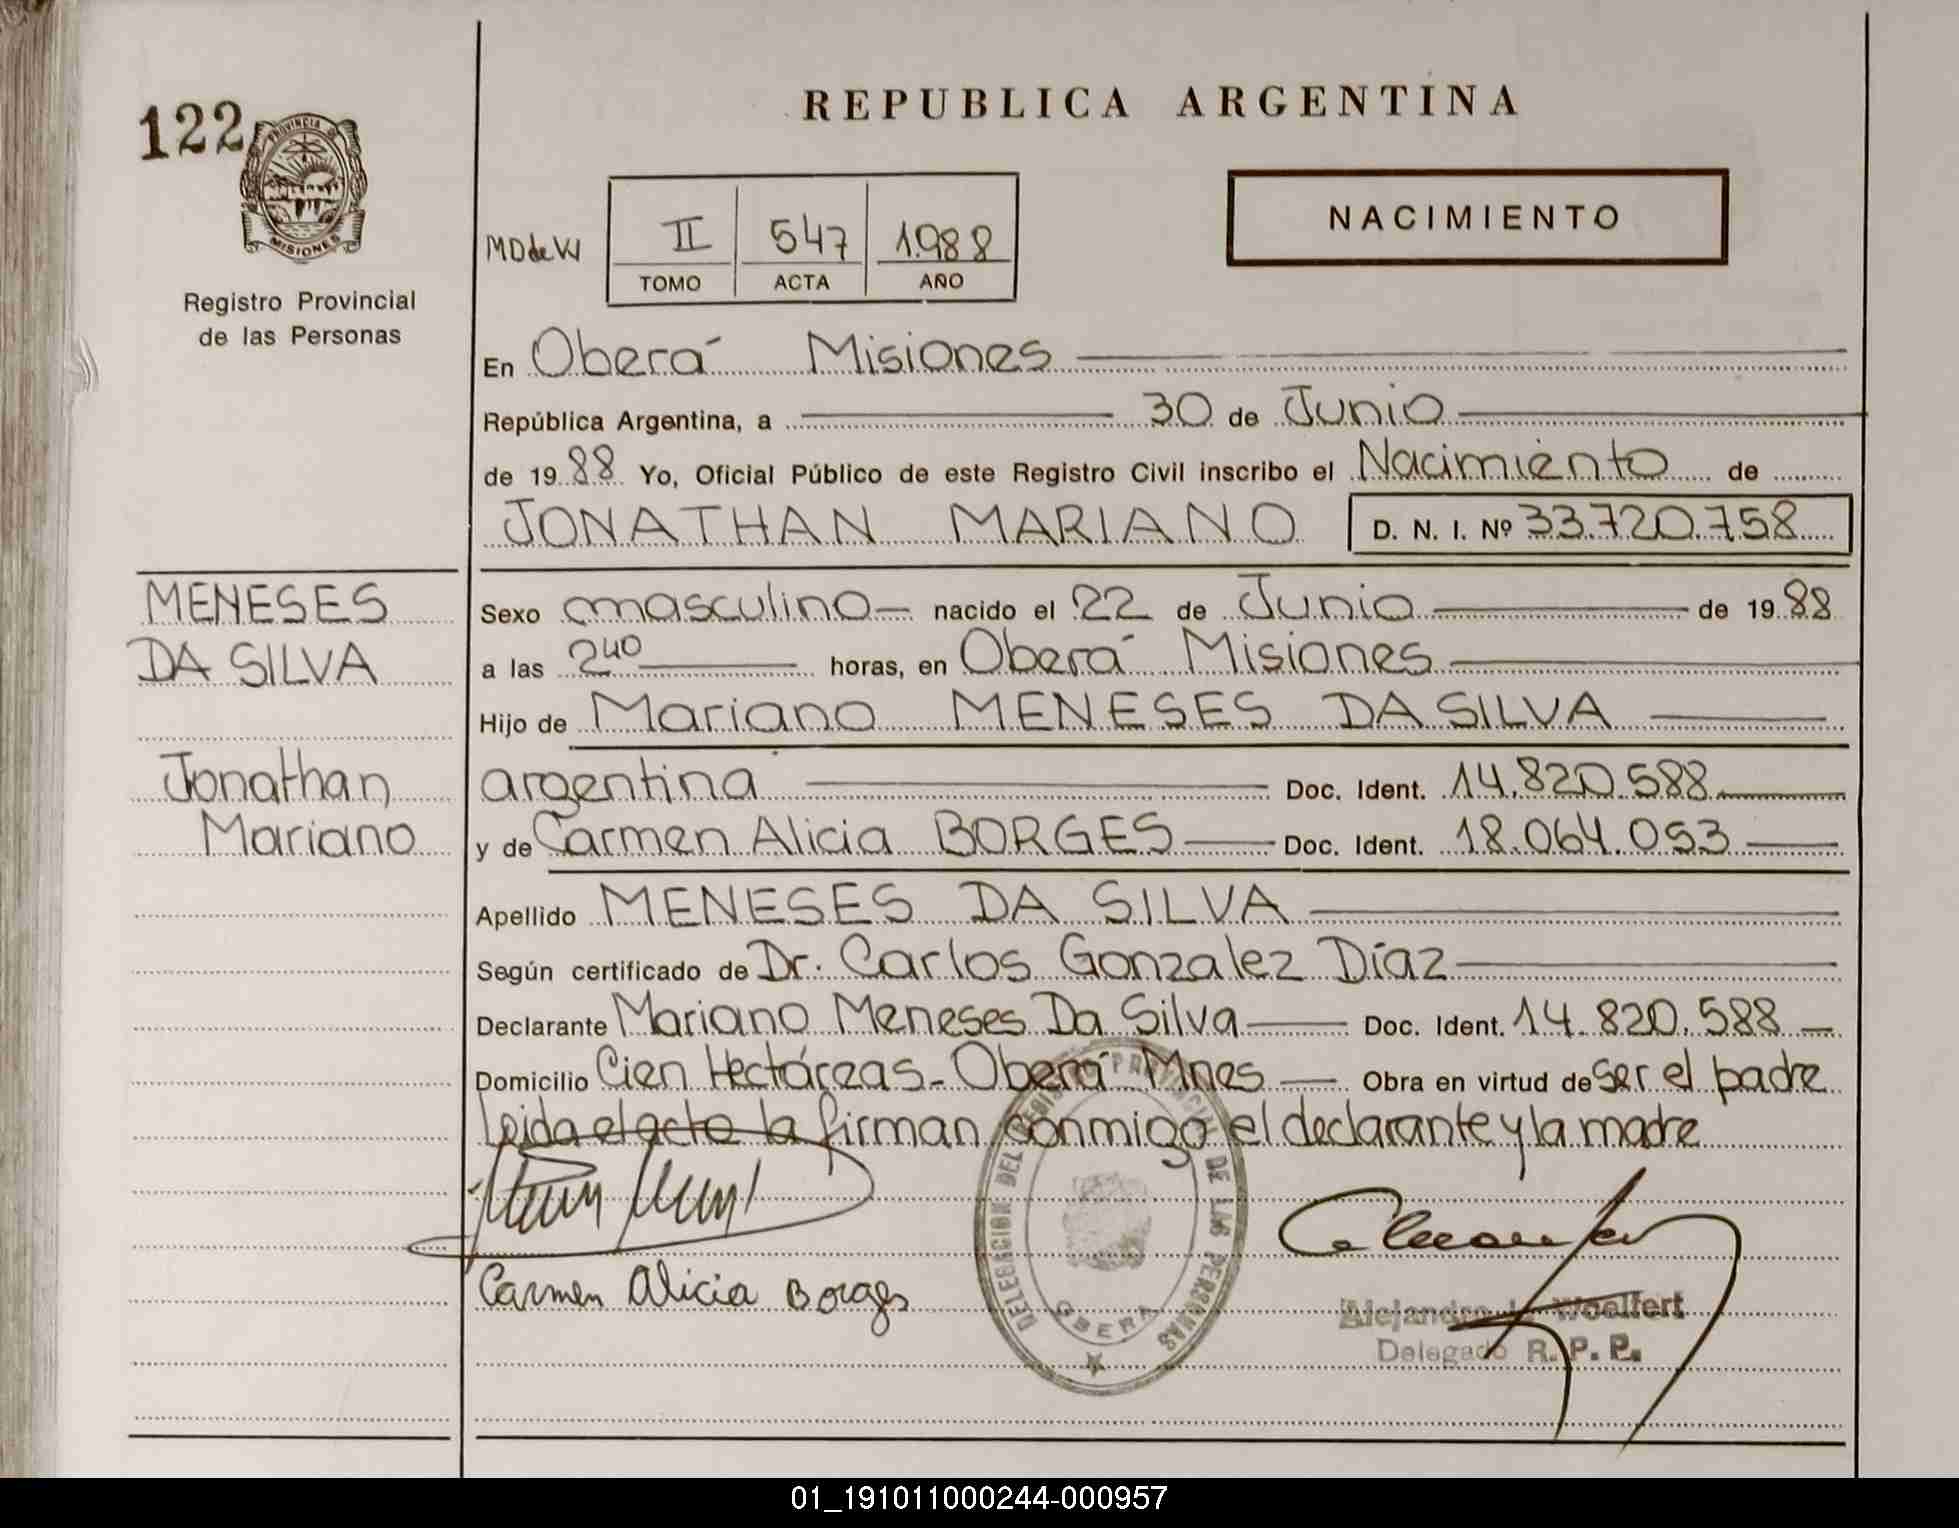 122
PROVINCIA DE
MISIONES
Registro Provincial
de las Personas
REPUBLICA ARGENTINA
NACIMIENTO
II 547 1.988
TOMO ACTA AÑO
En Oberá Misiones
República Argentina, a 30 de Junio
de 1988 Yo, Oficial Público de este Registro Civil inscribo el Nacimiento de
JONATHAN MARIANO D. N. I. Nº 33.720.758
MENESES
DA SILVA
Jonathan
Mariano
Sexo masculino nacido el 22 de Junio de 1988
a las 2 40 horas, en Oberá Misiones
Hijo de Mariano MENESES DA SILVA
argentina Doc. Ident. 14.820.588
y de Carmen Alicia BORGES Doc. Ident. 18.064.053
Apellido MENESES DA SILVA
Según certificado de Dr. Carlos Gonzalez Díaz
Declarante Mariano Meneses Da Silva Doc. Ident. 14.820.588
Domicilio Cien Hectáreas - Oberá Mnes Obra en virtud de ser el padre
Leida el acta la firman conmigo el declarante y la madre
Carmen Alicia Borges
DELEGACION DEL REGISTRO PROVINCIAL DE LAS PERSONAS
OBERA
Alejandro Woelfert
Delegado R. P. P.
01_191011000244-000957